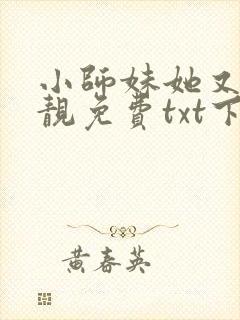 小師妹她又
靚免費txt下
黃春英